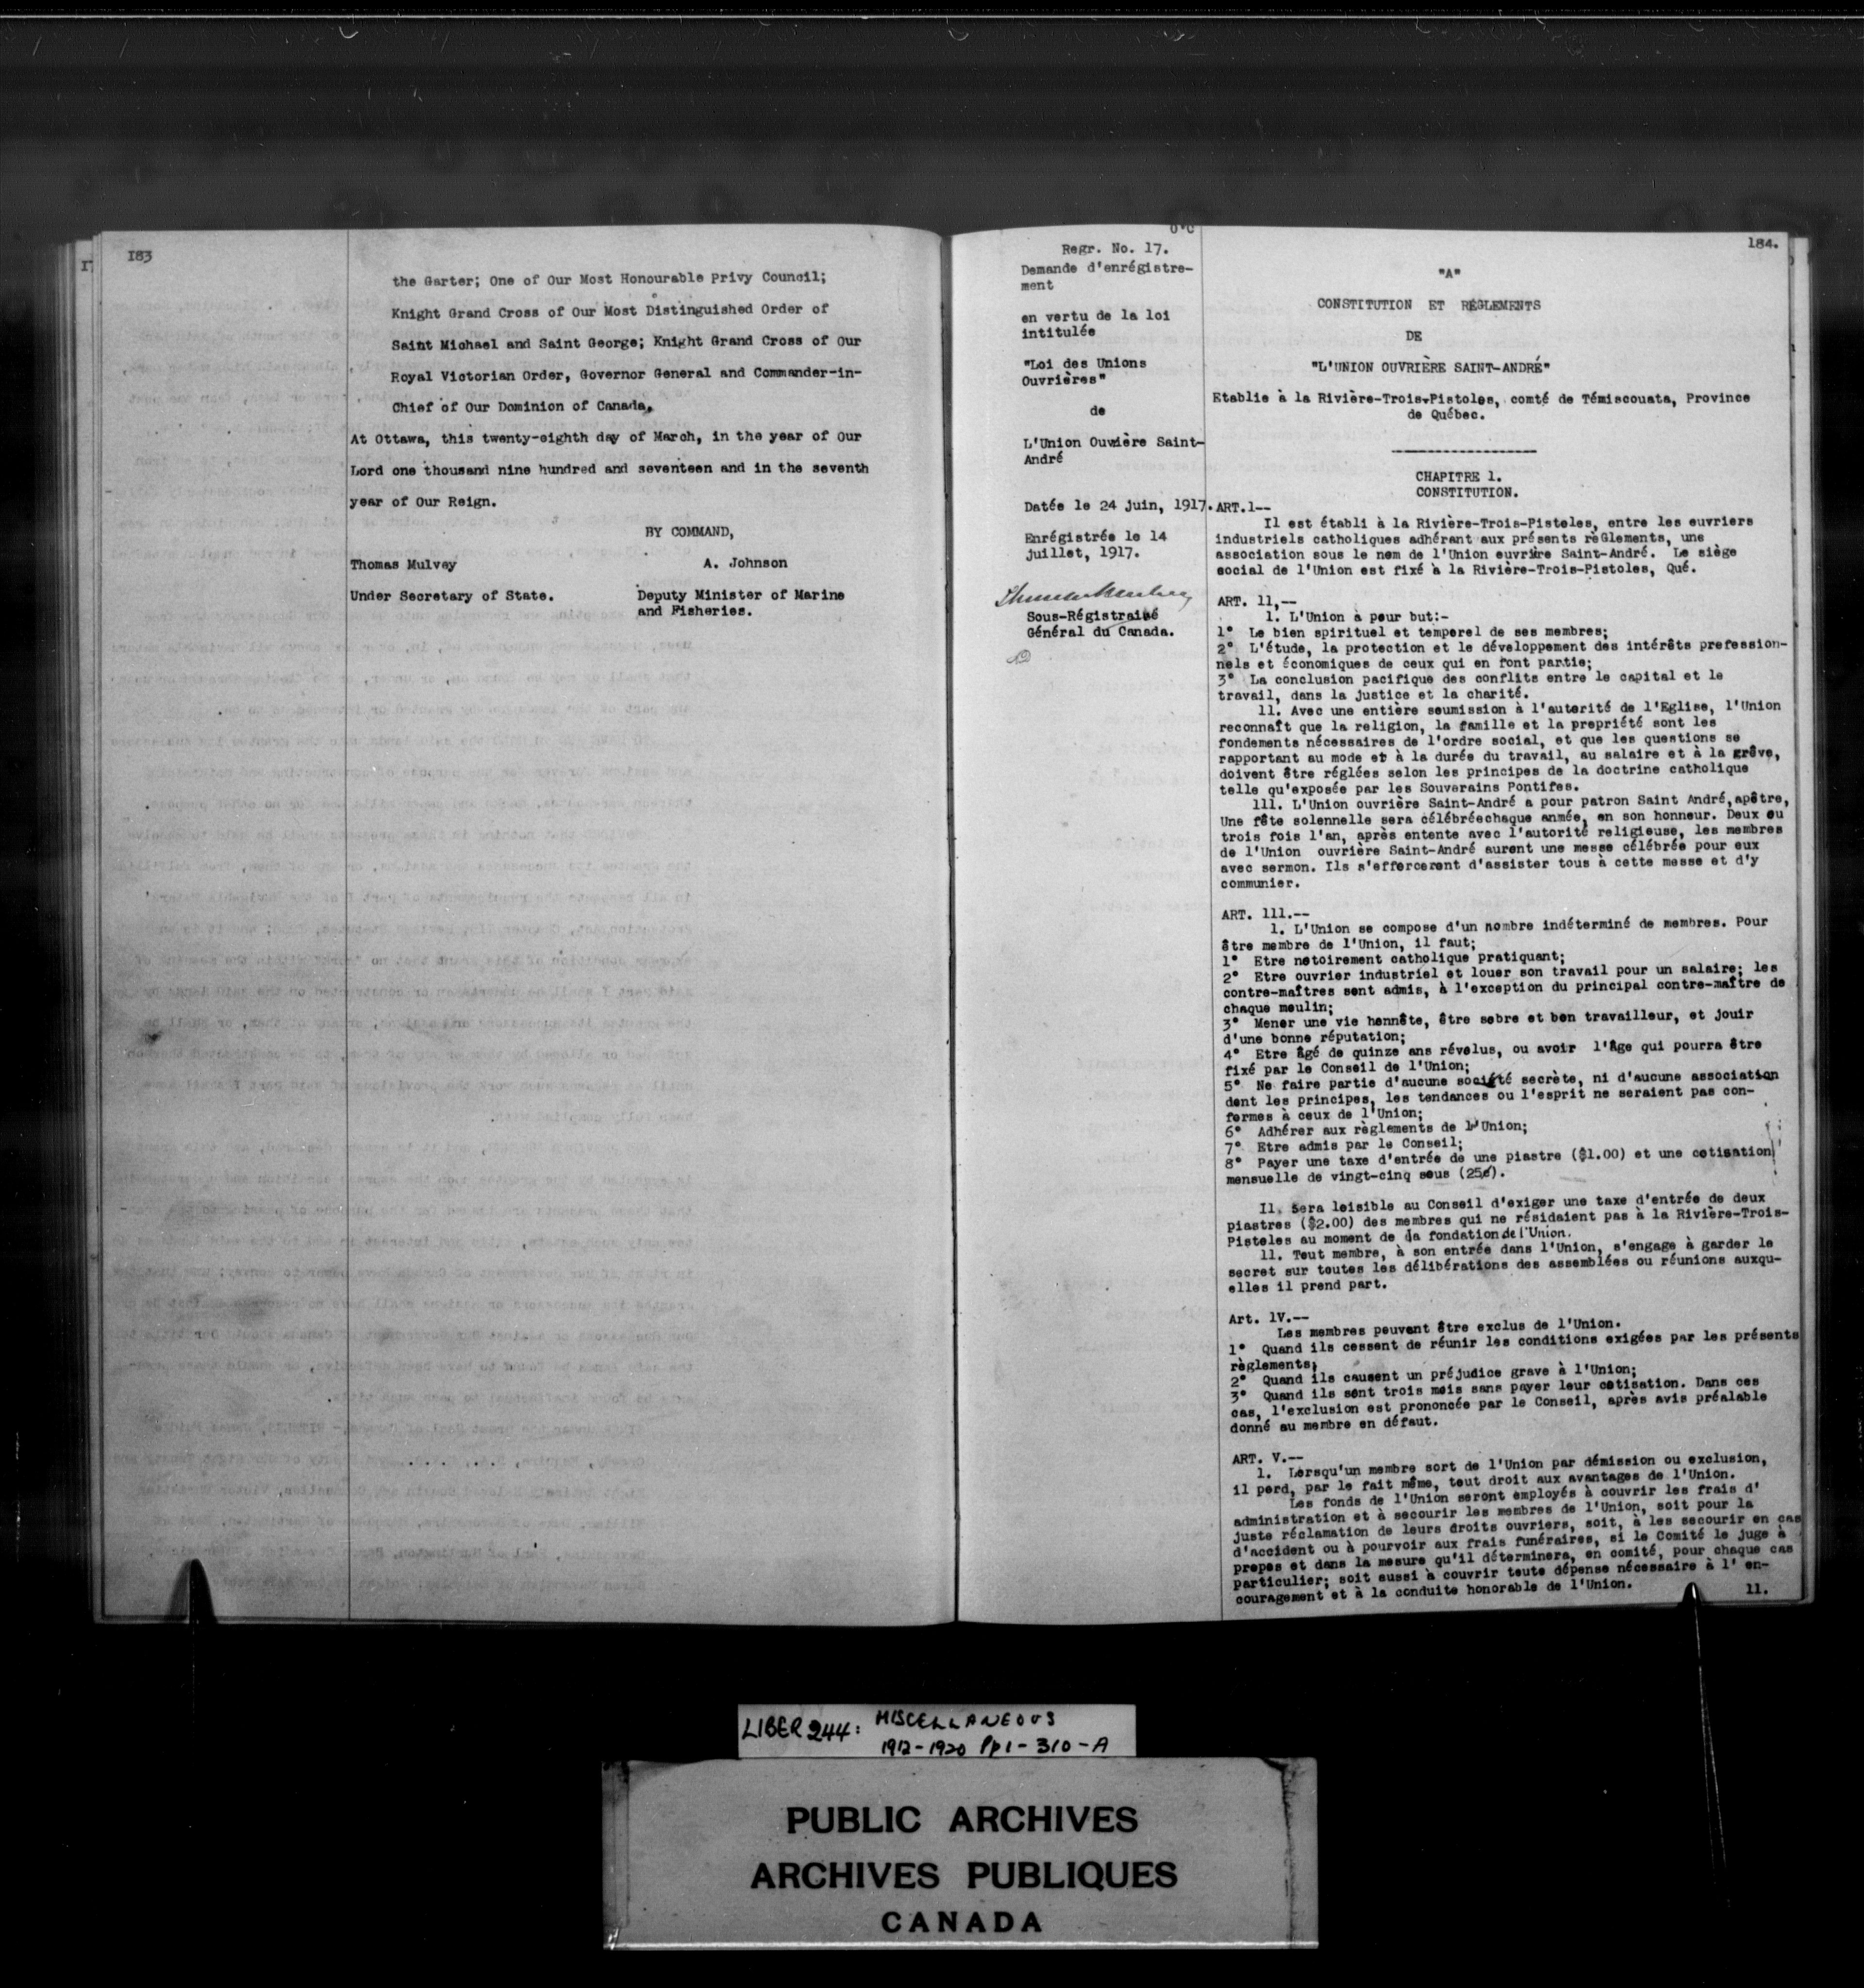 183
the Garter; One of Our Most Honourable Privy Council;
Knight Grand Cross of Our Most Distinguished Order of
Saint Michael and Saint George; Knight Grand Cross of Our
Royal Victorian Order, Governor General and Commander-in-
Chief of Our Dominion of Canada.
At Ottawa, this twenty-eighth day of March, in the year of Our
Lord one thousand nine hundred and seventeen and in the seventh
year of Our Reign.
BY COMMAND,
Thomas Mulvey A. Johnson
Under Secretary of State. Deputy Minister of Marine
and Fisheries.
184.
Regr. No. 17.
Demande d'enrégistre-
ment
en vertu de la loi
intitulée
"Loi des Unions
Ouvrières"
de
L'Union Ouvrière Saint-
André
Datée le 24 juin, 1917.
Enrégistrée le 14
juillet, 1917.
Sous-Régistraire
Général du Canada.
"A"
CONSTITUTION ET RÉGLEMENTS
DE
"L'UNION OUVRIÈRE SAINT-ANDRÉ"
Etablie à la Rivière-Trois-Pistoles, comté de Témiscouata, Province
de Québec.
CHAPITRE 1.
CONSTITUTION.
ART.1--
Il est établi à la Rivière-Trois-Pisteles, entre les euvriers
industriels catholiques adhérant aux présents rèGlements, une
association sous le nem de l'Union euvrière Saint-André. Le siège
social de l'Union est fixé à la Rivière-Trois-Pistoles, Qué.
ART. 11,--
1. L'Union a peur but:-
1° Le bien spirituel et temperel de ses membres;
2° L'étude, la protection et le développement des intérêts prefession-
nels et économiques de ceux qui en font partie;
3° La conclusion pacifique des conflits entre le capital et le
travail, dans la justice et la charité.
11. Avec une entière seumission à l'auterité de l'Eglise, l'Union
reconnaît que la religion, la famille et la prepriété sont les
fondements nécessaires de l'ordre social, et que les questions se
rapportant au mode et à la durée du travail, au salaire et à la grêve,
doivent être réglées selon les principes de la doctrine catholique
telle qu'exposée par les Souverains Pontifes.
111. L'Union ouvrière Saint-André a pour patron Saint André,apêtre,
Une fête solennelle sera célébréechaque anmée, en son honneur. Deux eu
trois fois l'an, après entente avec l'autorité religieuse, les membres
de l'Union ouvrière Saint-André aurent une messe célébrée pour eux
avec sermon. Ils s'effercerent d'assister tous à cette messe et d'y
communier.
ART. 111.--
1. L'Union se compose d'un nombre indéterminé de membres. Pour
être membre de l'Union, il faut;
1° Etre netoirement catholique pratiquant;
2° Etre ouvrier industriel et louer son travail pour un salaire; les
contre-maîtres sent admis, à l'exception du principal contre-maître de
chaque meulin;
3° Mener une vie hennête, être sebre et ben travailleur, et jouir
d'une bonne réputation;
4° Etre âgé de quinze ans révelus, ou avoir l'âge qui pourra être
fixé par le Conseil de l'Union;
5° Ne faire partie d'aucune société secrète, ni d'aucune association
dent les principes, les tendances ou l'esprit ne seraient pas con-
fermes à ceux de l'Union;
6° Adhérer aux règlements de l'Union;
7° Etre admis par le Conseil;
8° Payer une taxe d'entrée de une piastre ($1.00) et une cetisation
mensuelle de vingt-cinq seus (25¢).
Il sera leisible au Conseil d'exiger une taxe d'entrée de deux
piastres ($2.00) des membres qui ne résidaient pas à la Rivière-Trois-
Pisteles au moment de la fondation de l'Union.
11. Teut membre, à son entrée dans l'Union, s'engage à garder le
secret sur toutes les délibérations des assemblées ou réunions auxqu-
elles il prend part.
Art. 1V.--
Les membres peuvent être exclus de l'Union.
1° Quand ils cessent de réunir les conditions exigées par les présents
règlements;
2° Quand ils causent un préjudice grave à l'Union;
3° Quand ils sent trois meis sans payer leur cetisation. Dans ces
cas, l'exclusion est prononcée par le Conseil, après avis préalable
donné au membre en défaut.
ART. V.--
1. Lersqu'un membre sort de l'Union par démission ou exclusion,
il perd, par le fait même, teut droit aux avantages de l'Union.
Les fonds de l'Union seront employés à couvrir les frais d'
administration et à secourir les membres de l'Union, soit pour la
juste réclamation de leurs droits ouvriers, soit, à les secourir en cas
d'accident ou à pourvoir aux frais funéraires, si le Comité le juge à
prepes et dans la mesure qu'il déterminera, en comité, pour chaque cas
particulier; soit aussi à couvrir teute dépense nécessaire à l' en-
couragement et à la conduite honorable de l'Union.
11.
LIBER 244: MISCELLANEOUS
1912-1920 Pp 1-310-A
PUBLIC ARCHIVES
ARCHIVES PUBLIQUES
CANADA